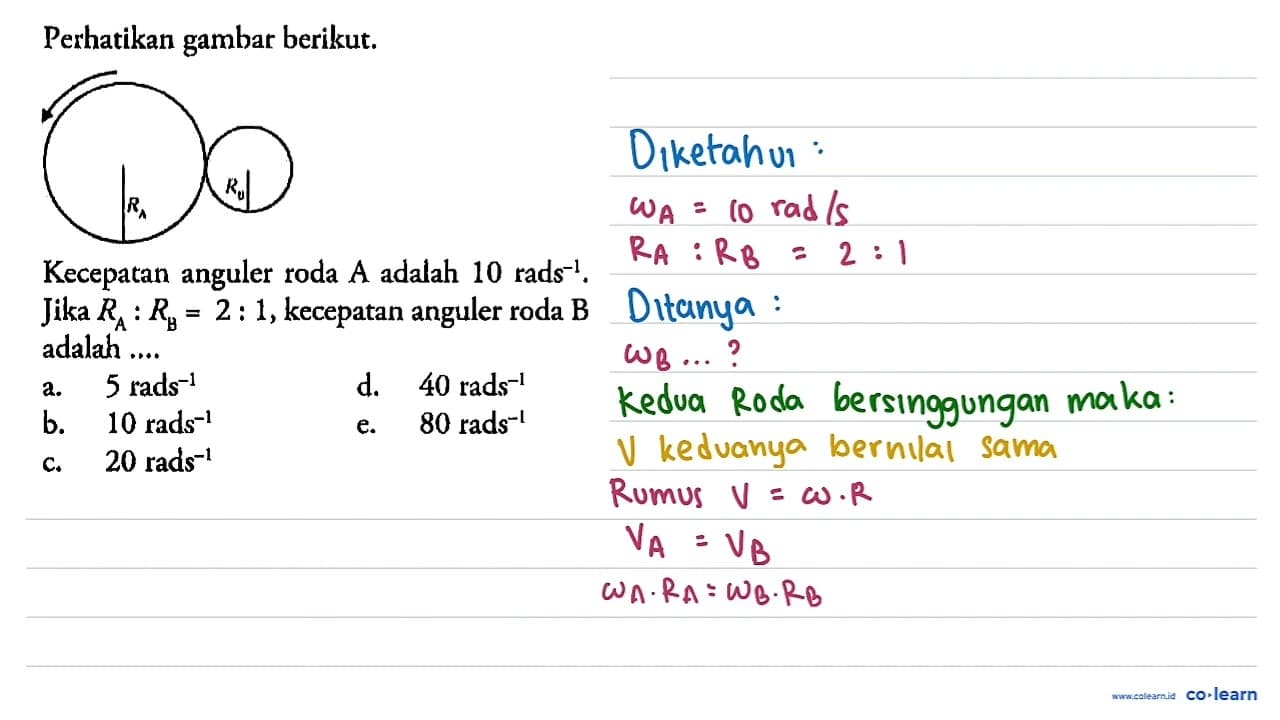 Perhatikan gambar berikut.
R_A
R_B
Kecepatan anguler roda A adalah 10 rads⁻¹.
Jika R_A : R_B = 2 : 1, kecepatan anguler roda B
adalah ....
a. 5 rads⁻¹ d. 40 rads⁻¹
b. 10 rads⁻¹ e. 80 rads⁻¹
c. 20 rads⁻¹
Diketahui :
ω_A = 10 rad/s
R_A : R_B = 2 : 1
Ditanya :
ω_B ... ?
Kedua Roda bersinggungan maka :
V keduanya bernilai sama
Rumus V = ω . R
V_A = V_B
ω_A . R_A = ω_B . R_B
www.colearn.id co·learn